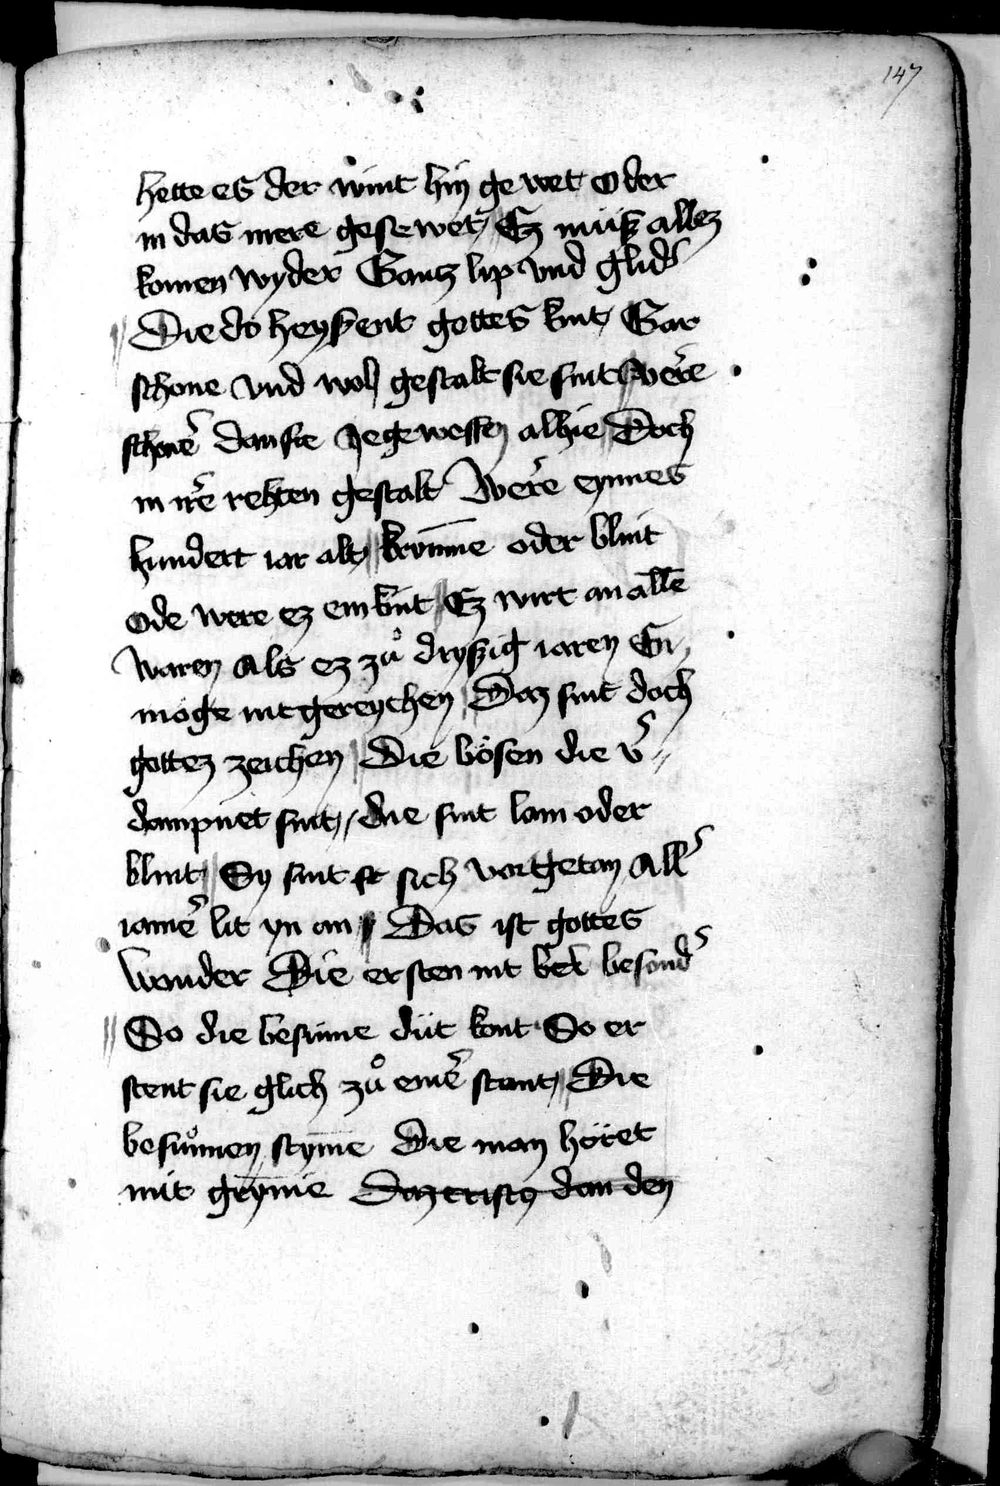 147
hette es der wint hin ge wet oder
in das mere gesewet / Ez müß allez
komen wyder Gantz lip vnd glid͛
Die do heyßent gottes kint / Gar
schone vnd wol gestalt sie sint Were
schone͛ dan sie Je gewessen alhie Doch
in ire͛ rehten gestalt Were eynnes
hundert iar alt / krṽmme oder blint
ode were ez ein kint / Ez wirt an alle͂
waren Als ez zů dryßig iaren Er
möge nit gereychen Daz sint doch
gottez zeichen Die bösen die v͛
dampnet sint / die sint lam oder
blint / Sy sint st sich vor getan All͛
iame͛ lit yn an Das ist gottes
wonder Die ersten nit bet besond͛
So die besünne düt kont So er
stent sie glich zů eine͛ stont / Die
besuͦnnen stym̄e Die man höret
mit grym̄e Daz cristen dan den